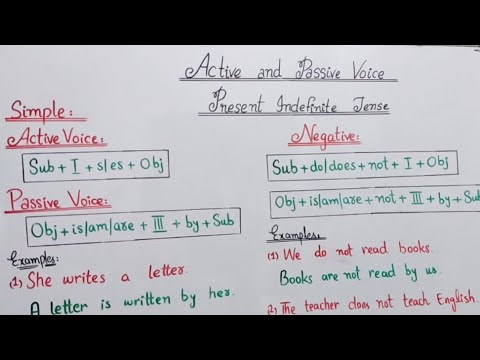 Active and Passive Voice
Present Indefinite Tense
Simple:
Active Voice:
Sub + I + s/es + Obj
Passive Voice:
Obj + is/am/are + III + by + Sub
Examples:
(1) She writes a letter.
A letter is written by her.
Negative:
Sub + do/does + not + I + Obj
Obj + is/am/are + not + III + by + Sub
Examples.
(1) We do not read books.
Books are not read by us.
(2) The teacher does not teach English.